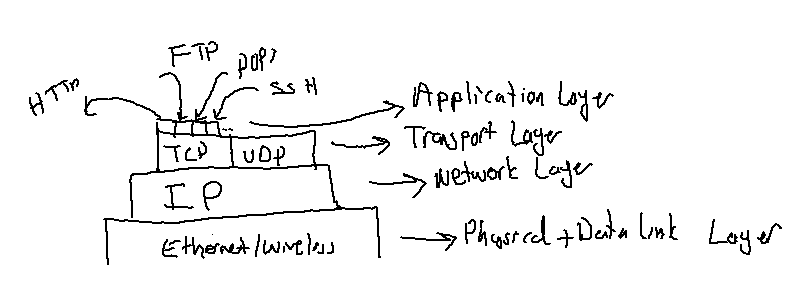 FTP
POP3
HTTP
SSH
Application Layer
TCP
UDP
Transport Layer
IP
Network Layer
Ethernet/Wireless
Physical + Data link Layer